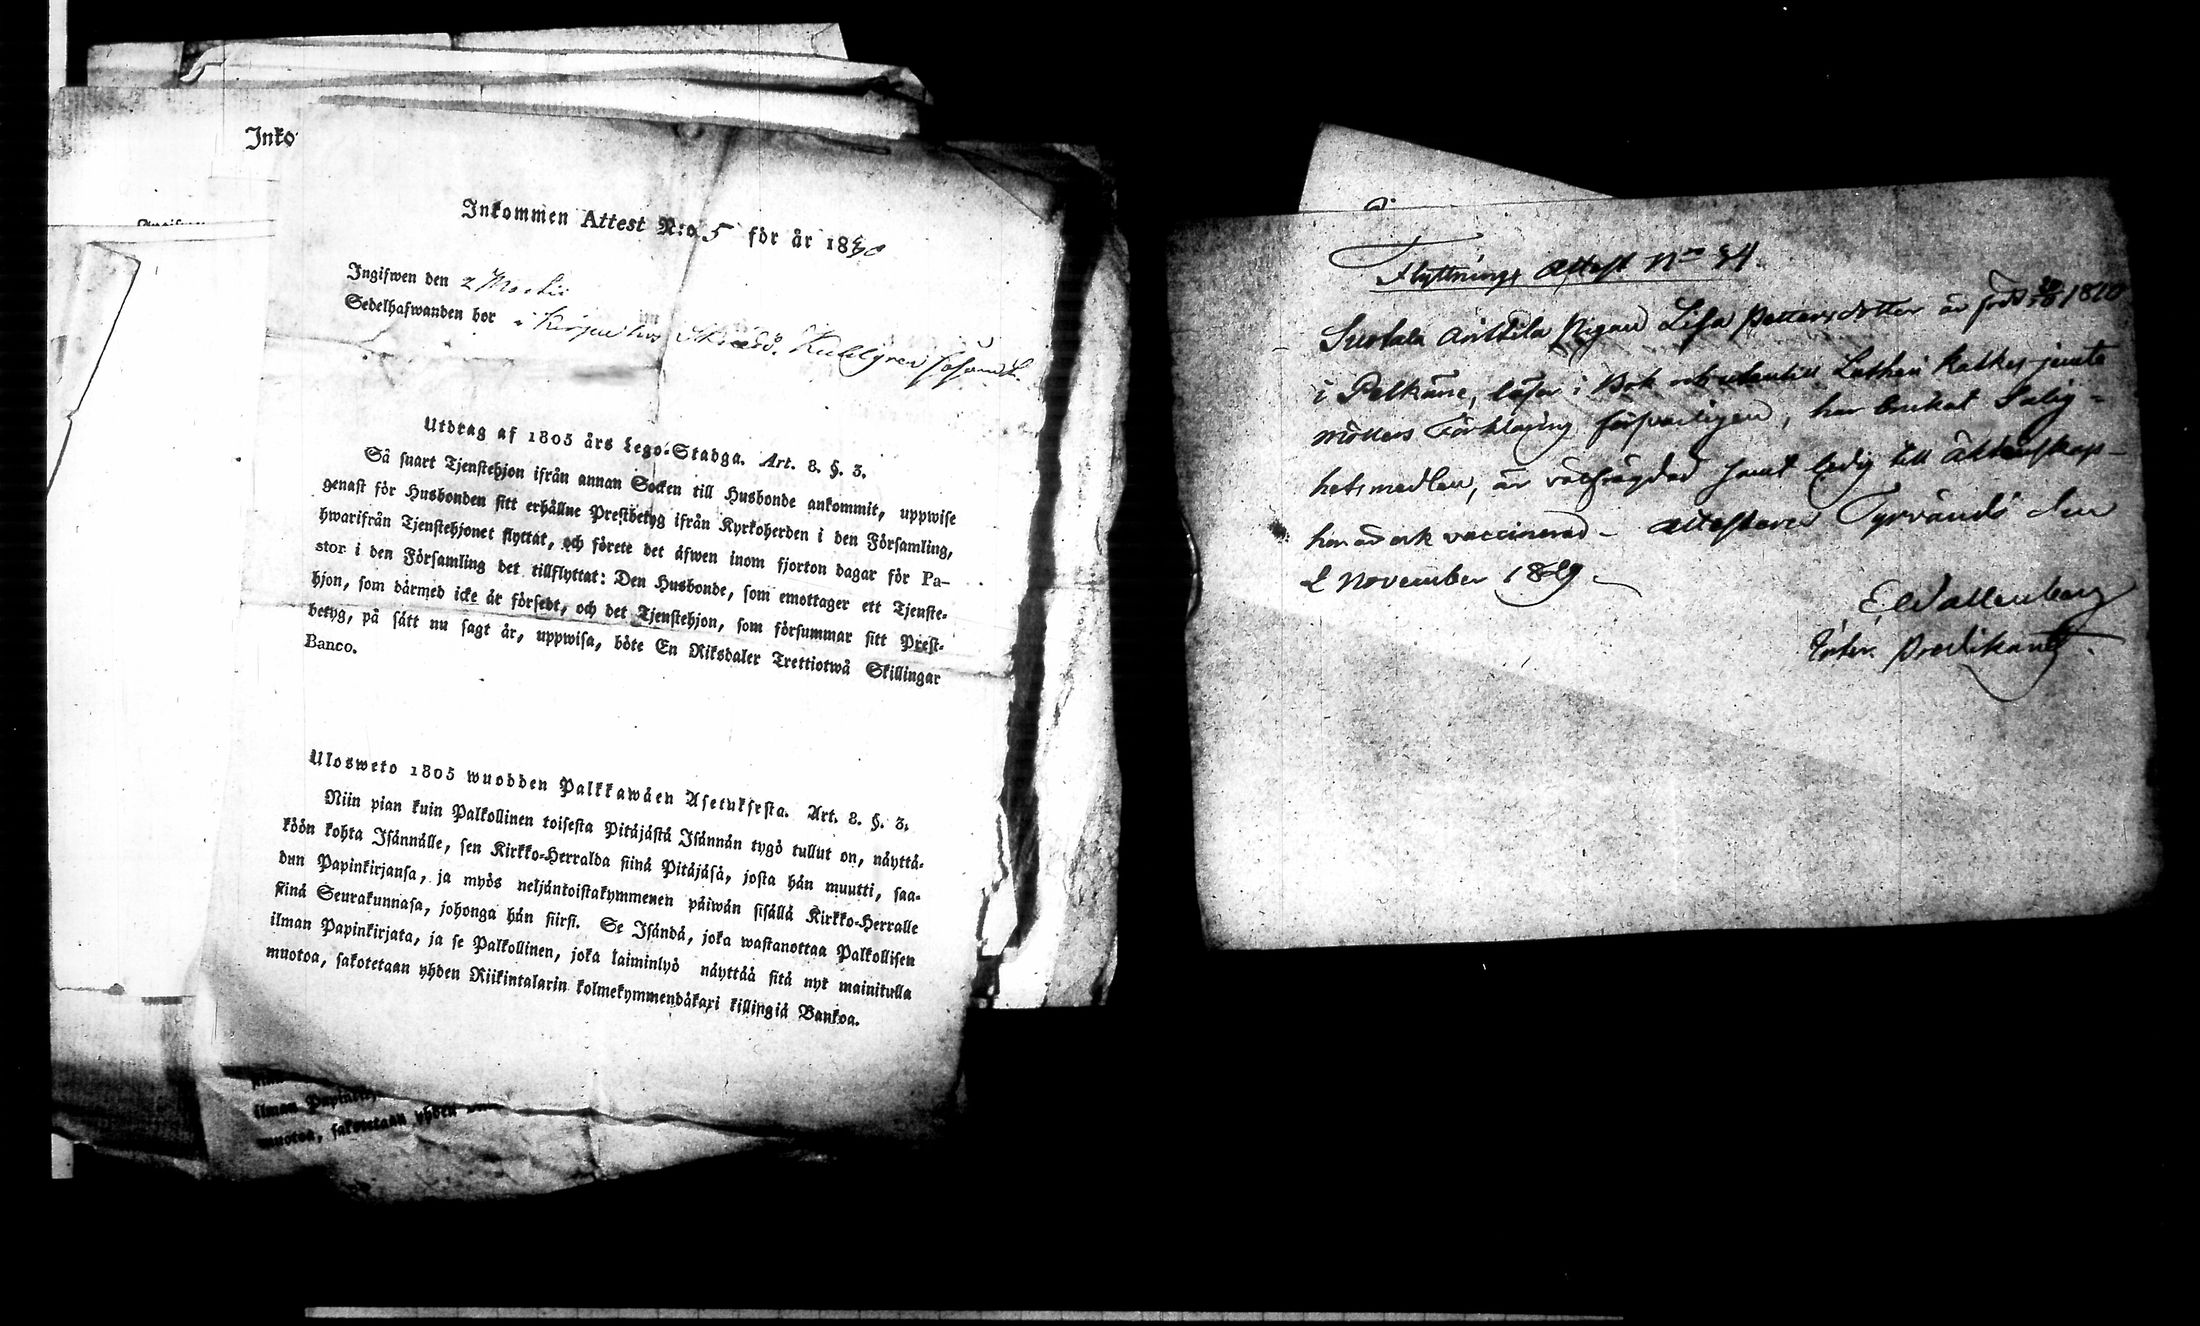 Inko
Inkommen Attest N:o 5 för år 1840
Ingifwen den 2 Martii
Sedelhafwanden bor i
Utdrag af 1805 års Lego-Stadga. Art. 8. §. 3.
Så snart Tjenstehjon ifrån annan Socken till Husbonde ankommit, uppwise
genast för Husbonden sitt erhållne Prestbetyg ifrån Kyrkoherden i den Församling,
hwarifrån Tjenstehjonet flyttat, och förete det äfwen inom fjorton dagar för Pa-
stor i den Församling det tillflyttat: Den Husbonde, som emottager ett Tjenste-
hjon, som därmed icke är försedt, och det Tjenstehjon, som försummar sitt Prest-
betyg, på sätt nu sagt är, uppwisa, böte En Riksdaler Trettiotwå Skillingar
Banco.
Ulosweto 1805 wuodden Palkkawäen Asetuksesta. Art. 8. §. 3.
Niin pian kuin Palkollinen toisesta Pitäjästä Isännän tygö tullut on, näyttä-
köön kohta Isännälle, sen Kirkko-Herralda siinä Pitäjäsä, josta hän muutti, saa-
dun Papinkirjansa, ja myös neljäntoistakymmenen päiwän sisällä Kirkko-Herralle
siinä Seurakunnasa, johonga hän siirsi. Se Isändä, joka wastanottaa Palkollisen
ilman Papinkirjata, ja se Palkollinen, joka laiminlyö näyttää sitä nyt mainitulla
muotoa, sakotetaan yhden Riikintalarin kolmekymmendäkaxi killingiä Bankoa.
ilman
muotoa, sakotetaan yhden
Flyttnings Attest No 34.
Anttila Pigan Lisa Pettersdotter är född 1820
i Pelkäne, läser i Bok och utantill Luthers Katkes jemte
Förklaring försvarligen, har brukat Salig-
hetsmedlen, är välfrägdad samt ledig till äktenskap
hon är ock vaccinerad - attesterar Tyrvändö den
2 November 1839.
E Wallenberg
Predikant.